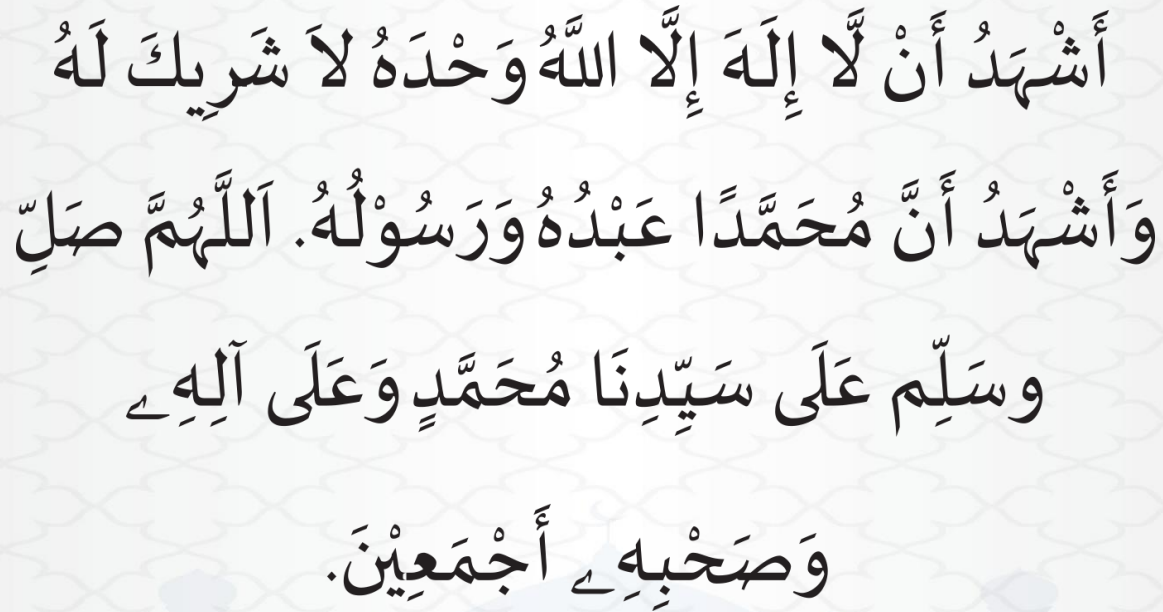 أَشْهَدُ أَنْ لَّا إِلَهَ إِلَّا اللَّهُ وَحْدَهُ لاَ شَرِيكَ لَهُ
وَأَشْهَدُ أَنَّ مُحَمَّدًا عَبْدُهُ وَرَسُوْلُهُ. اَللَّهُمَّ صَلِّ
وسَلِّم عَلَى سَيِّدِنَا مُحَمَّدٍ وَعَلَى آلِهِۦ
وَصَحْبِهِۦ أَجْمَعِيْنَ.